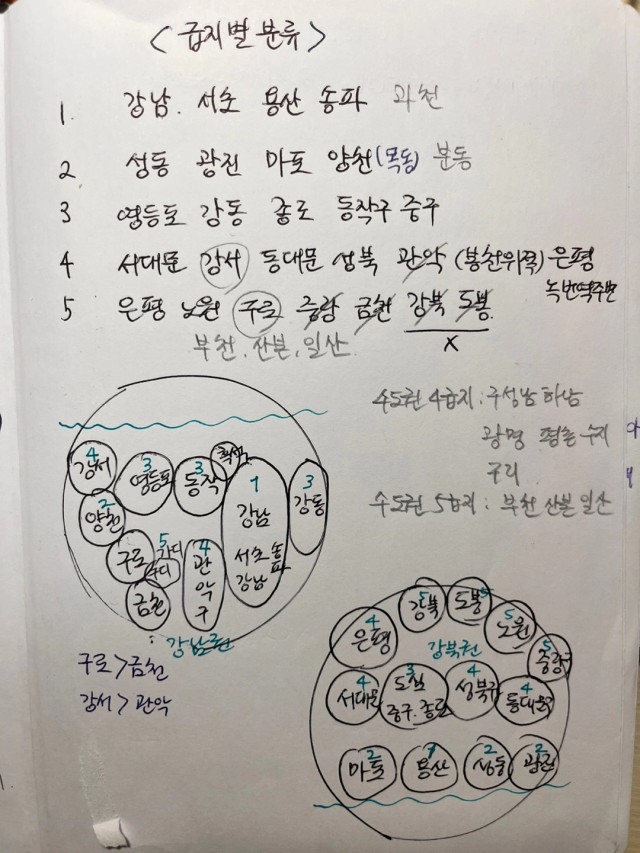 <급지별 분류>
1. 강남. 서초 용산 송파 과천
2 성동 광진 마포 양천(목동) 분당
3 영등포 강동 종로 동작구 중구
4 서대문 강서 동대문 성북 관악 (봉천위쪽) 은평
녹번역주변
5 은평 노원 구로 중랑 금천 강북 도봉
X
부천. 산본. 일산
수도권 4급지 : 구성남 하남
광명 평촌 수지
구리
수도권 5급지 : 부천 산본 일산
4 강서
3 영등포
3 동작
흑석
1 강남
서초 송파
강남
3 강동
2 양천
구로
5 가디
구디
4 관악구
금천
강남권
구로 > 금천
강서 > 관악
5 강북
5 도봉
4 은평
강북권
5 노원
5 중랑
4 서대문
3 도심
중구.종로
4 성북구
4 동대문
2 마포
1 용산
2 성동
2 광진